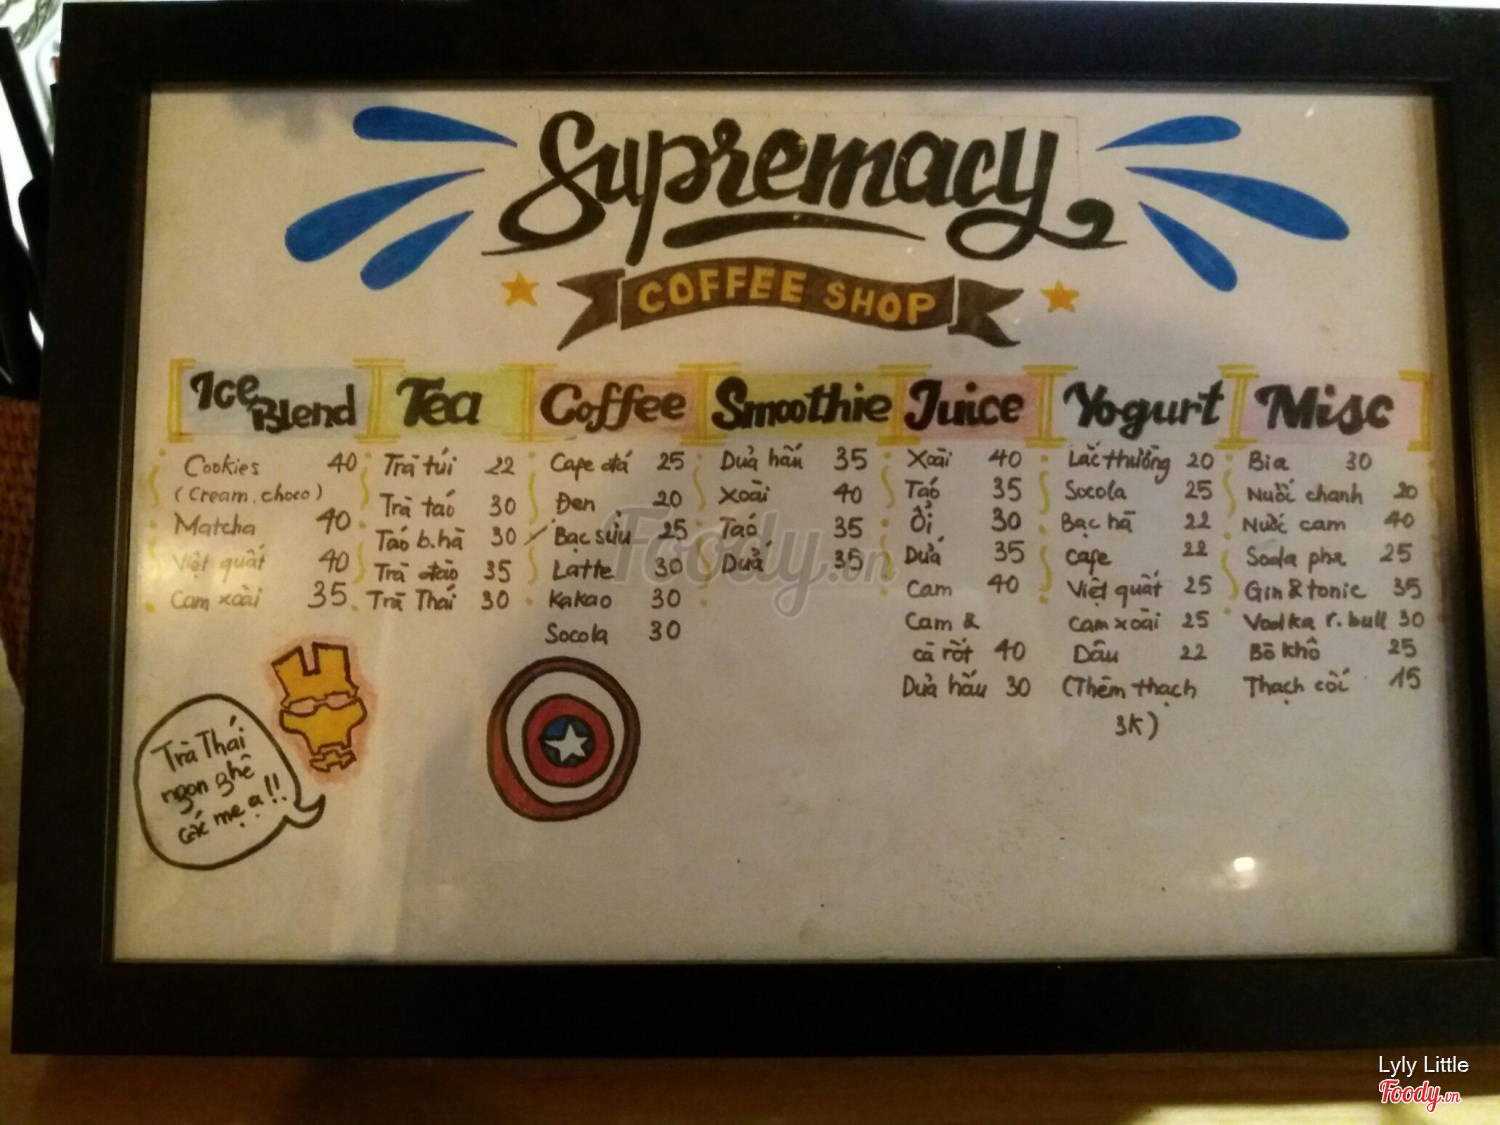 Supremacy
COFFEE SHOP
Ice Blend
Cookies 40
(Cream, choco)
Matcha 40
Việt quất 40
Cam xoài 35
Tea
Trà túi 22
Trà táo 30
Táo b.hà 30
Trà đào 35
Trà Thái 30
Coffee
Cafe đá 25
Đen 20
Bạc sửu 25
Latte 30
Kakao 30
Socola 30
Smoothie
Dưa hấu 35
Xoài 40
Táo 35
Dứa 35
Juice
Xoài 40
Táo 35
Ổi 30
Dứa 35
Cam 40
Cam &
cà rốt 40
Dưa hấu 30
Yogurt
Lắc thường 20
Socola 25
Bạc hà 22
Cafe 22
Việt quất 25
Cam xoài 25
Dâu 22
(Thêm thạch
3K)
Misc
Bia 30
Nước chanh 20
Nước cam 40
Soda pha 25
Gin & tonic 35
Vodka r.bull 30
Bò khô 25
Thạch cốc 15
Trà Thái
ngon ghê
các mẹ ạ!!
Foody.vn
Lyly Little
Foody.vn